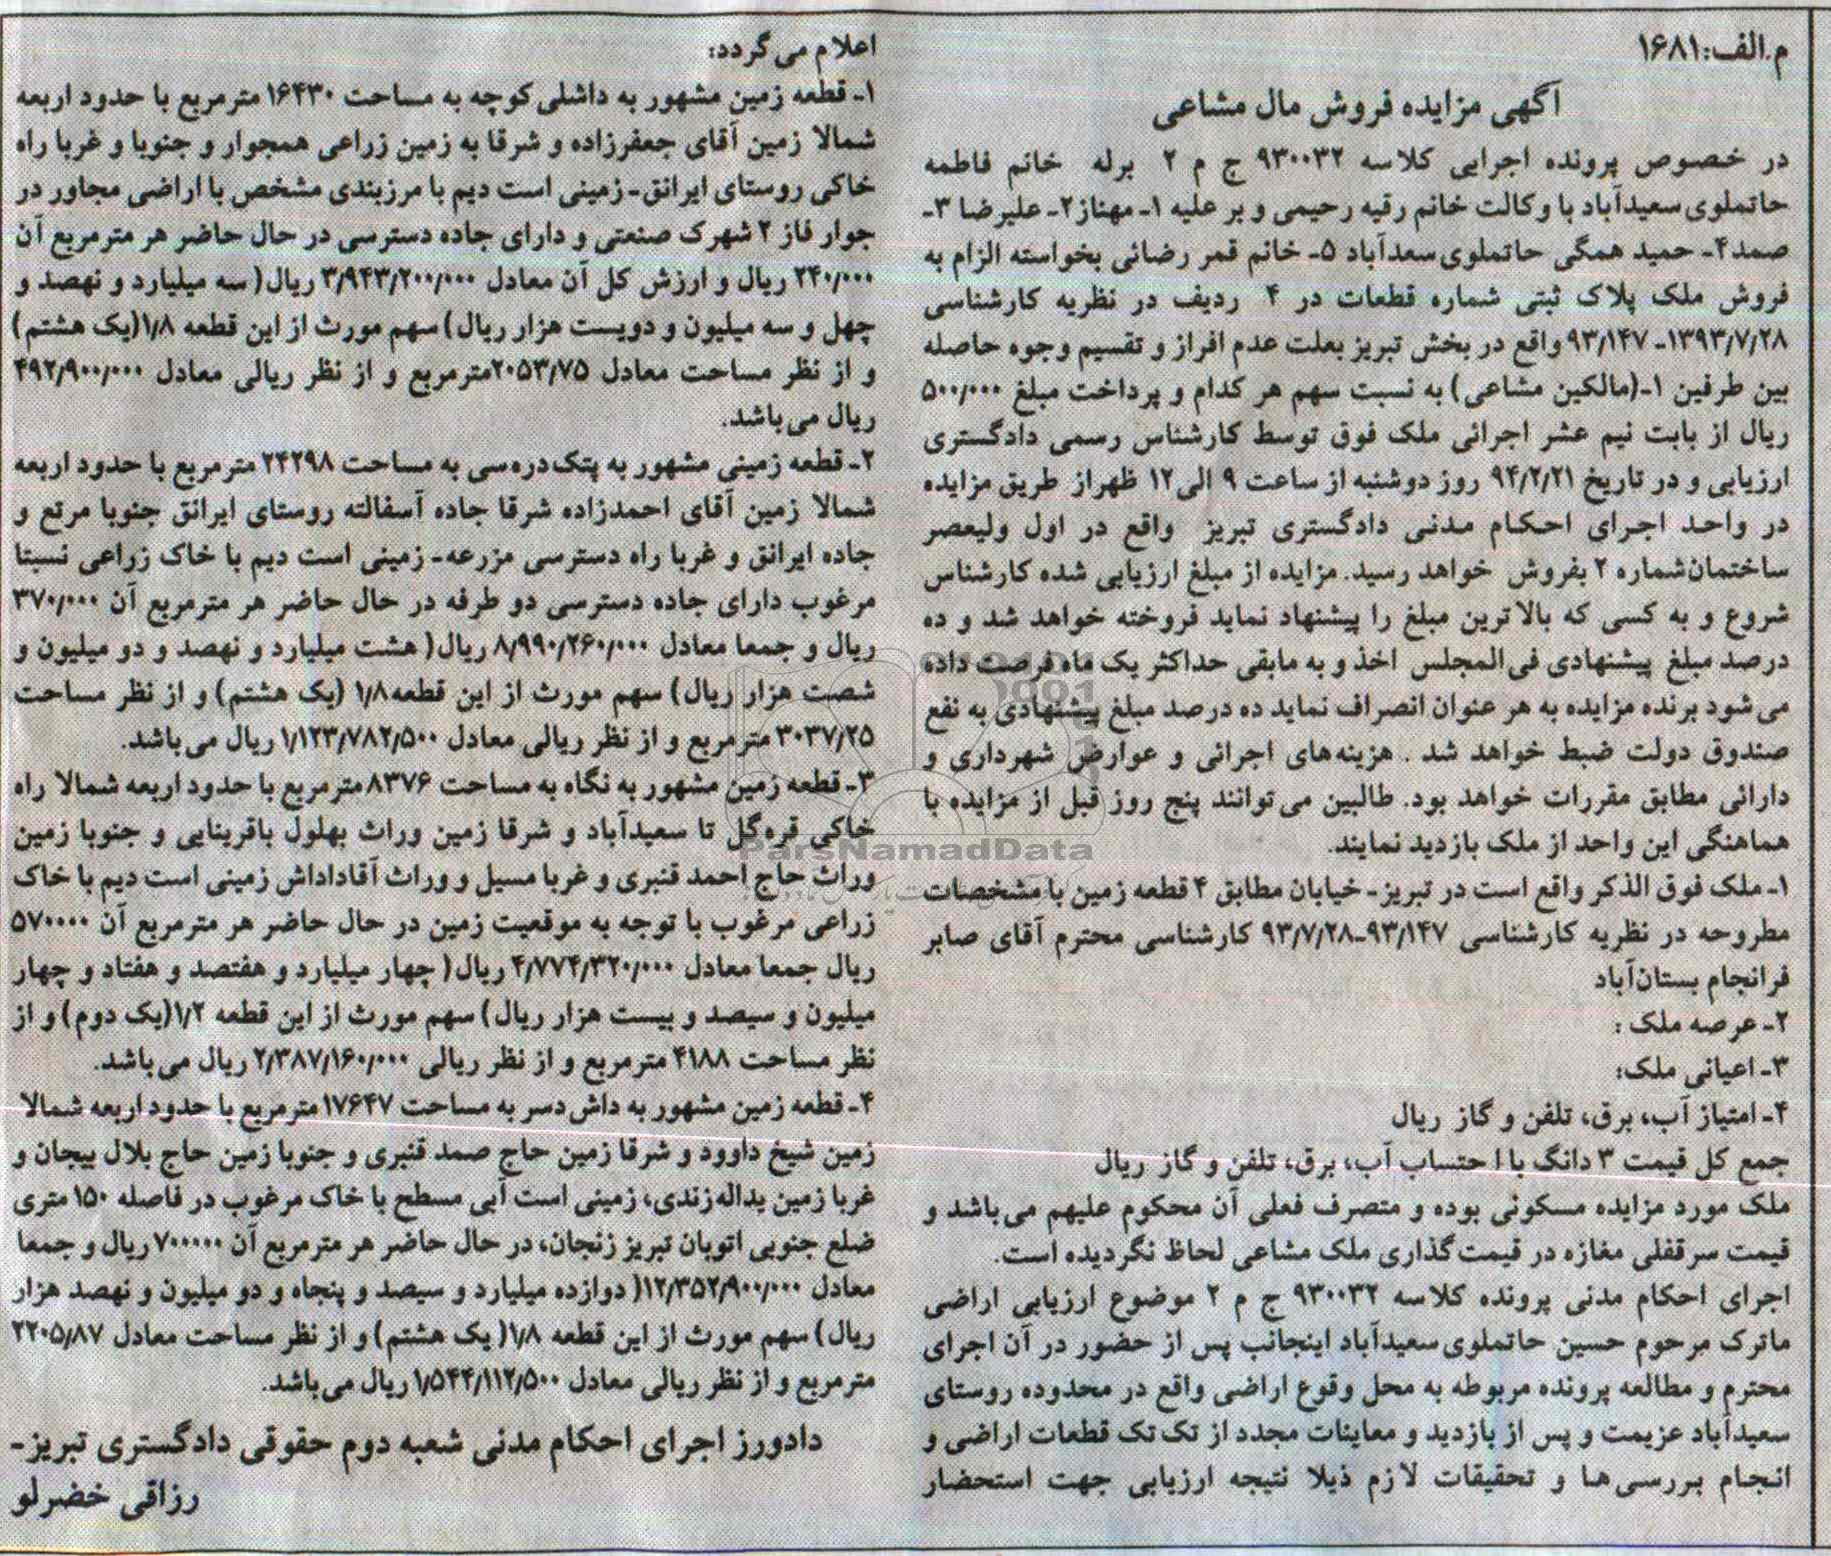 م.الف:۱۶۸۱
آگهی مزایده فروش مال مشاعی
در خصوص پرونده اجرایی کلاسه ۹۳۰۰۳۲ ج م ۲ برله خانم فاطمه
حاتملوی سعیدآباد با وکالت خانم رقیه رحیمی و بر علیه ۱- مهناز۲- علیرضا ۳-
صمد۴- حمید همگی حاتملوی سعدآباد ۵- خانم قمر رضائی بخواسته الزام به
فروش ملک پلاک ثبتی شماره قطعات در ۴ ردیف در نظریه کارشناسی
۱۳۹۳/۷/۲۸- ۹۳/۱۴۷ واقع در بخش تبریز بعلت عدم افراز و تقسیم وجوه حاصله
بین طرفین ۱-(مالکین مشاعی) به نسبت سهم هر کدام و پرداخت مبلغ ۵۰۰/۰۰۰
ریال از بابت نیم عشر اجرائی ملک فوق توسط کارشناس رسمی دادگستری
ارزیابی و در تاریخ ۹۴/۲/۲۱ روز دوشنبه از ساعت ۹ الی۱۲ ظهراز طریق مزایده
در واحد اجرای احکام مدنی دادگستری تبریز واقع در اول ولیعصر
ساختمان شماره ۲ بفروش خواهد رسید. مزایده از مبلغ ارزیابی شده کارشناس
شروع و به کسی که بالاترین مبلغ را پیشنهاد نماید فروخته خواهد شد و ده
درصد مبلغ پیشنهادی فی‌المجلس اخذ و به مابقی حداکثر یک ماه فرصت داده
می‌شود برنده مزایده به هر عنوان انصراف نماید ده درصد مبلغ پیشنهادی به نفع
صندوق دولت ضبط خواهد شد . هزینه‌های اجرائی و عوارض شهرداری و
دارائی مطابق مقررات خواهد بود. طالبین می‌توانند پنج روز قبل از مزایده با
هماهنگی این واحد از ملک بازدید نمایند.
۱- ملک فوق الذکر واقع است در تبریز- خیابان مطابق ۴ قطعه زمین با مشخصات
مطروحه در نظریه کارشناسی ۹۳/۱۴۷-۹۳/۷/۲۸ کارشناسی محترم آقای صابر
فرانجام بستان‌آباد
۲- عرصه ملک :
۳- اعیانی ملک:
۴- امتیاز آب، برق، تلفن و گاز ریال
جمع کل قیمت ۳ دانگ با احتساب آب، برق، تلفن و گاز ریال
ملک مورد مزایده مسکونی بوده و متصرف فعلی آن محکوم علیهم می‌باشد و
قیمت سرقفلی مغازه در قیمت‌گذاری ملک مشاعی لحاظ نگردیده است.
اجرای احکام مدنی پرونده کلاسه ۹۳۰۰۳۲ ج م ۲ موضوع ارزیابی اراضی
ماترک مرحوم حسین حاتملوی سعیدآباد اینجانب پس از حضور در آن اجرای
محترم و مطالعه پرونده مربوطه به محل وقوع اراضی واقع در محدوده روستای
سعیدآباد عزیمت و پس از بازدید و معاینات مجدد از تک تک قطعات اراضی و
انجام بررسی‌ها و تحقیقات لازم ذیلا نتیجه ارزیابی جهت استحضار
اعلام می‌گردد:
۱- قطعه زمین مشهور به داشلی‌کوچه به مساحت ۱۶۴۳۰ مترمربع با حدود اربعه
شمالا زمین آقای جعفرزاده و شرقا به زمین زراعی همجوار و جنوبا و غربا راه
خاکی روستای ایرانق- زمینی است دیم با مرزبندی مشخص با اراضی مجاور در
جوار فاز ۲ شهرک صنعتی و دارای جاده دسترسی در حال حاضر هر مترمربع آن
۲۴۰/۰۰۰ ریال و ارزش کل آن معادل ۳/۹۴۳/۲۰۰/۰۰۰ ریال( سه میلیارد و نهصد و
چهل و سه میلیون و دویست هزار ریال) سهم مورث از این قطعه ۱/۸(یک هشتم)
و از نظر مساحت معادل ۲۰۵۳/۷۵مترمربع و از نظر ریالی معادل ۴۹۲/۹۰۰/۰۰۰
ریال می‌باشد.
۲- قطعه زمینی مشهور به پتک‌دره‌سی به مساحت ۲۴۲۹۸ مترمربع با حدود اربعه
شمالا زمین آقای احمدزاده شرقا جاده آسفالته روستای ایرانق جنوبا مرتع و
جاده ایرانق و غربا راه دسترسی مزرعه- زمینی است دیم با خاک زراعی نسبتا
مرغوب دارای جاده دسترسی دو طرفه در حال حاضر هر مترمربع آن ۳۷۰/۰۰۰
ریال و جمعا معادل ۸/۹۹۰/۲۶۰/۰۰۰ ریال( هشت میلیارد و نهصد و دو میلیون و
شصت هزار ریال) سهم مورث از این قطعه۱/۸ (یک هشتم) و از نظر مساحت
۳۰۳۷/۲۵ مترمربع و از نظر ریالی معادل ۱/۱۲۳/۷۸۲/۵۰۰ ریال می‌باشد.
۳- قطعه زمین مشهور به نگاه به مساحت ۸۳۷۶ مترمربع با حدود اربعه شمالا راه
خاکی قره‌گل تا سعیدآباد و شرقا زمین وراث بهلول باقربنایی و جنوبا زمین
وراث حاج احمد قنبری و غربا مسیل و وراث آقاداداش زمینی است دیم با خاک
زراعی مرغوب با توجه به موقعیت زمین در حال حاضر هر مترمربع آن ۵۷۰۰۰۰
ریال جمعا معادل ۴/۷۷۴/۳۲۰/۰۰۰ ریال( چهار میلیارد و هفتصد و هفتاد و چهار
میلیون و سیصد و بیست هزار ریال) سهم مورث از این قطعه ۱/۲(یک دوم) و از
نظر مساحت ۴۱۸۸ مترمربع و از نظر ریالی ۲/۳۸۷/۱۶۰/۰۰۰ ریال می‌باشد.
۴- قطعه زمین مشهور به داش‌دسر به مساحت ۱۷۶۴۷ مترمربع با حدود اربعه شمالا
زمین شیخ داوود و شرقا زمین حاج صمد قنبری و جنوبا زمین حاج بلال بیجان و
غربا زمین یداله‌زندی، زمینی است آبی مسطح با خاک مرغوب در فاصله ۱۵۰ متری
ضلع جنوبی اتوبان تبریز زنجان، در حال حاضر هر مترمربع آن ۷۰۰۰۰۰ ریال و جمعا
معادل ۱۲/۳۵۲/۹۰۰/۰۰۰( دوازده میلیارد و سیصد و پنجاه و دو میلیون و نهصد هزار
ریال) سهم مورث از این قطعه ۱/۸( یک هشتم) و از نظر مساحت معادل ۲۲۰۵/۸۷
مترمربع و از نظر ریالی معادل ۱/۵۴۴/۱۱۲/۵۰۰ ریال می‌باشد.
دادورز اجرای احکام مدنی شعبه دوم حقوقی دادگستری تبریز-
رزاقی خضرلو
ParsNamadData